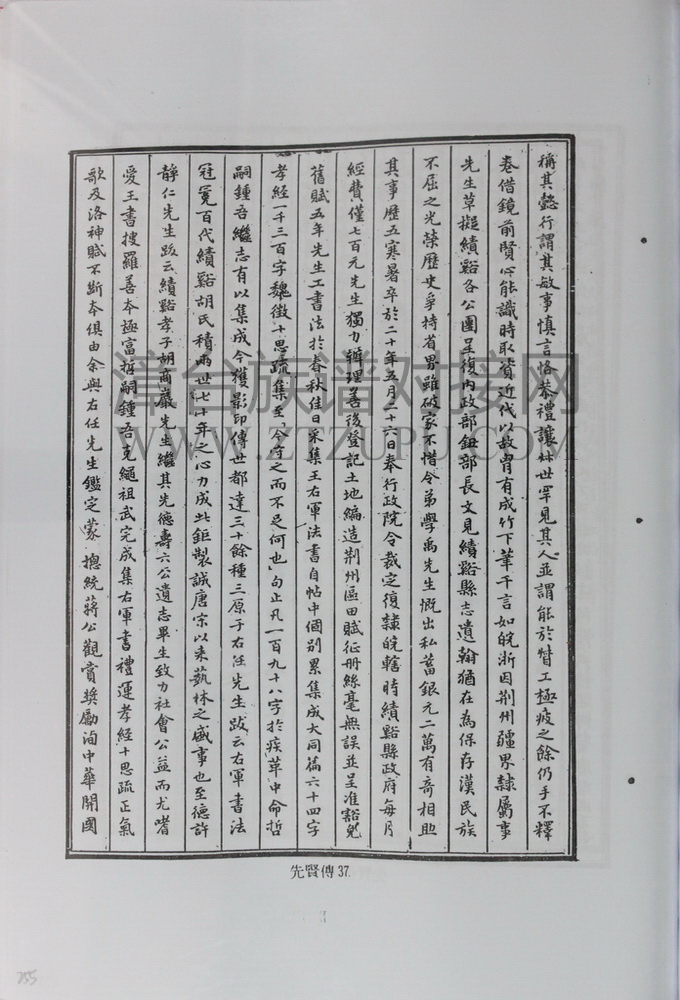 稱其懿行謂其敏事慎言恪恭禮讓並世罕見其人並謂能於贊工極疲之餘仍手不釋
卷借鏡前賢心能識時取資近代以故胷有成竹下筆千言如皖浙因荆州疆界隸屬事
先生草擬績谿各公團呈復內政部鈕部長文見績谿縣志遺翰猶在為保存漢民族
不屈之光榮歷史爭持省界雖破家不惜令弟學禹先生慨出私蓄銀元二萬有奇相助
其事歷五寒暑卒於二十年五月二十六日奉行政院令裁定復隸皖轄時績谿縣政府每月
經費僅七百元先生獨力辦理善後登記土地編造荆州區田賦征册絲毫無誤並呈准豁免
舊賦五年先生工書法於春秋佳日采集王右軍法書自帖中個別累集成大同篇六十四字
孝經一千三百字魏徵十思疏集至「今守之而不足何也」句止凡一百九十八字於疾革中命哲
嗣鍾吾繼志有以集成今獲影印傳世都達三十餘種三原于右任先生跋云右軍書法
冠冕百代績谿胡氏積兩世七十年之心力成此鉅製誠唐宗以來藝林之盛事也至德許
靜仁先生跋云績谿孝子胡商巖先生繼其先德壽六公遺志畢生致力社會公益而尤嗜
愛王書搜羅善本極富哲嗣鍾吾克繩祖武完成集右軍書禮運孝經十思疏正氣
歌及洛神賦不斷本俱由余與右任先生鑑定蒙 總統蔣公觀賞獎勵洵中華開國
先賢傳 37.
漳台族谱对接网
WWW.ZTZUPU.COM
355